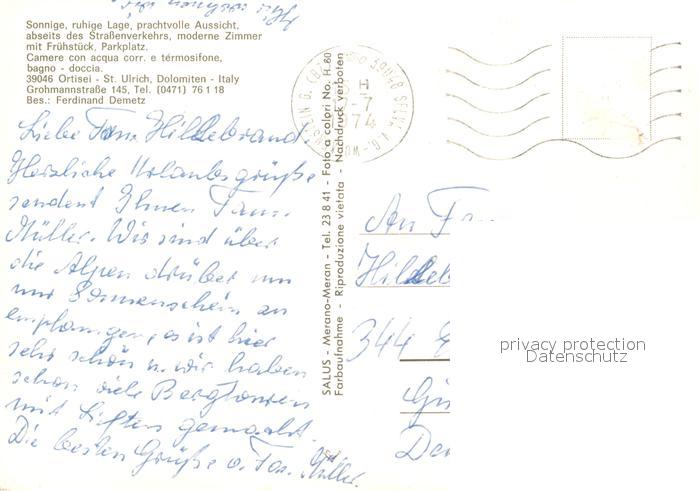 Sonnige, ruhige Lage, prachtvolle Aussicht,
abseits des Straßenverkehrs, moderne Zimmer
mit Frühstück, Parkplatz.
Camere con acqua corr. e térmosifone,
bagno - doccia.
39046 Ortisei - St. Ulrich, Dolomiten - Italy
Grohmannstraße 145, Tel. (0471) 76 1 18
Bes.: Ferdinand Demetz
Liebe Fam. Hildebrand.
Herzliche Urlaubsgrüße
sendent Ihnen Fam.
Müller. Wir sind über
die Alpen drüber um
um Sonnenschein zu
empfangen, es ist hier
sehr schön u. wir haben
schon viele Bergtouren
mit Liften gemacht.
Die besten Grüße v. Fam. Müller.
SALUS - Merano-Meran - Tel. 23 8 41 - Foto a colori No. H.60
Farbaufnahme - Riproduzione vietata - Nachdruck verboten
39048 SELVA
An
344
privacy protection
Datenschutz